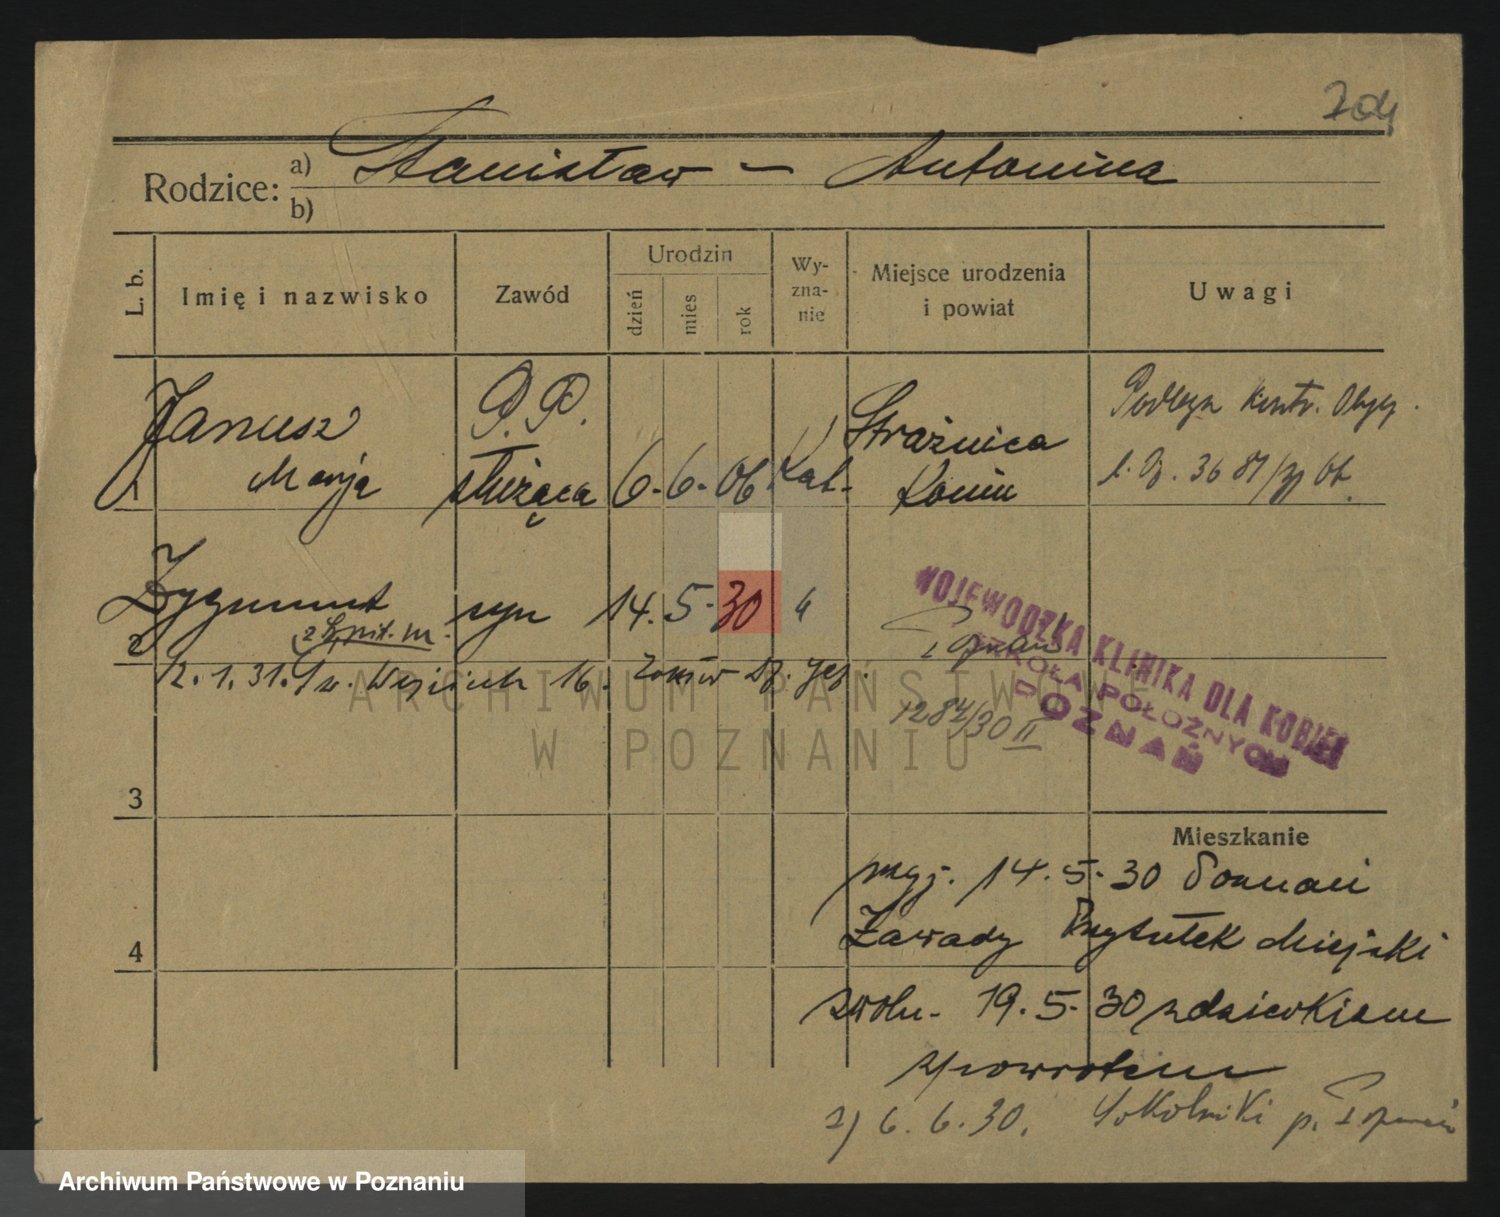 704
Rodzice: a) Stanisław – Antonina
b)
L. b. Imię i nazwisko Zawód Urodzin dzień mies rok Wy-zna-nie Miejsce urodzenia i powiat Uwagi
Janusz P.P. Strażnica
1 Marja służąca 6. 6. 06 Kat. Konin
2 Zygmunt syn 14. 5. 30 " Poznań
z Szpit. m.
12. 1. 31. Św. Wojciech 16.
1284/30 II
WOJEWÓDZKA KLINIKA DLA KOBIET
SZKOŁA POŁOŻNYCH
POZNAŃ
3
Mieszkanie
14. 5. 30 Poznań
4 Zawady Przytułek Miejski
zwoln. 19. 5. 30 z dzieckiem
z powrotem
2) 6. 6. 30. Sokolniki p.
ARCHIWUM PAŃSTWOWE
W POZNANIU
Archiwum Państwowe w Poznaniu